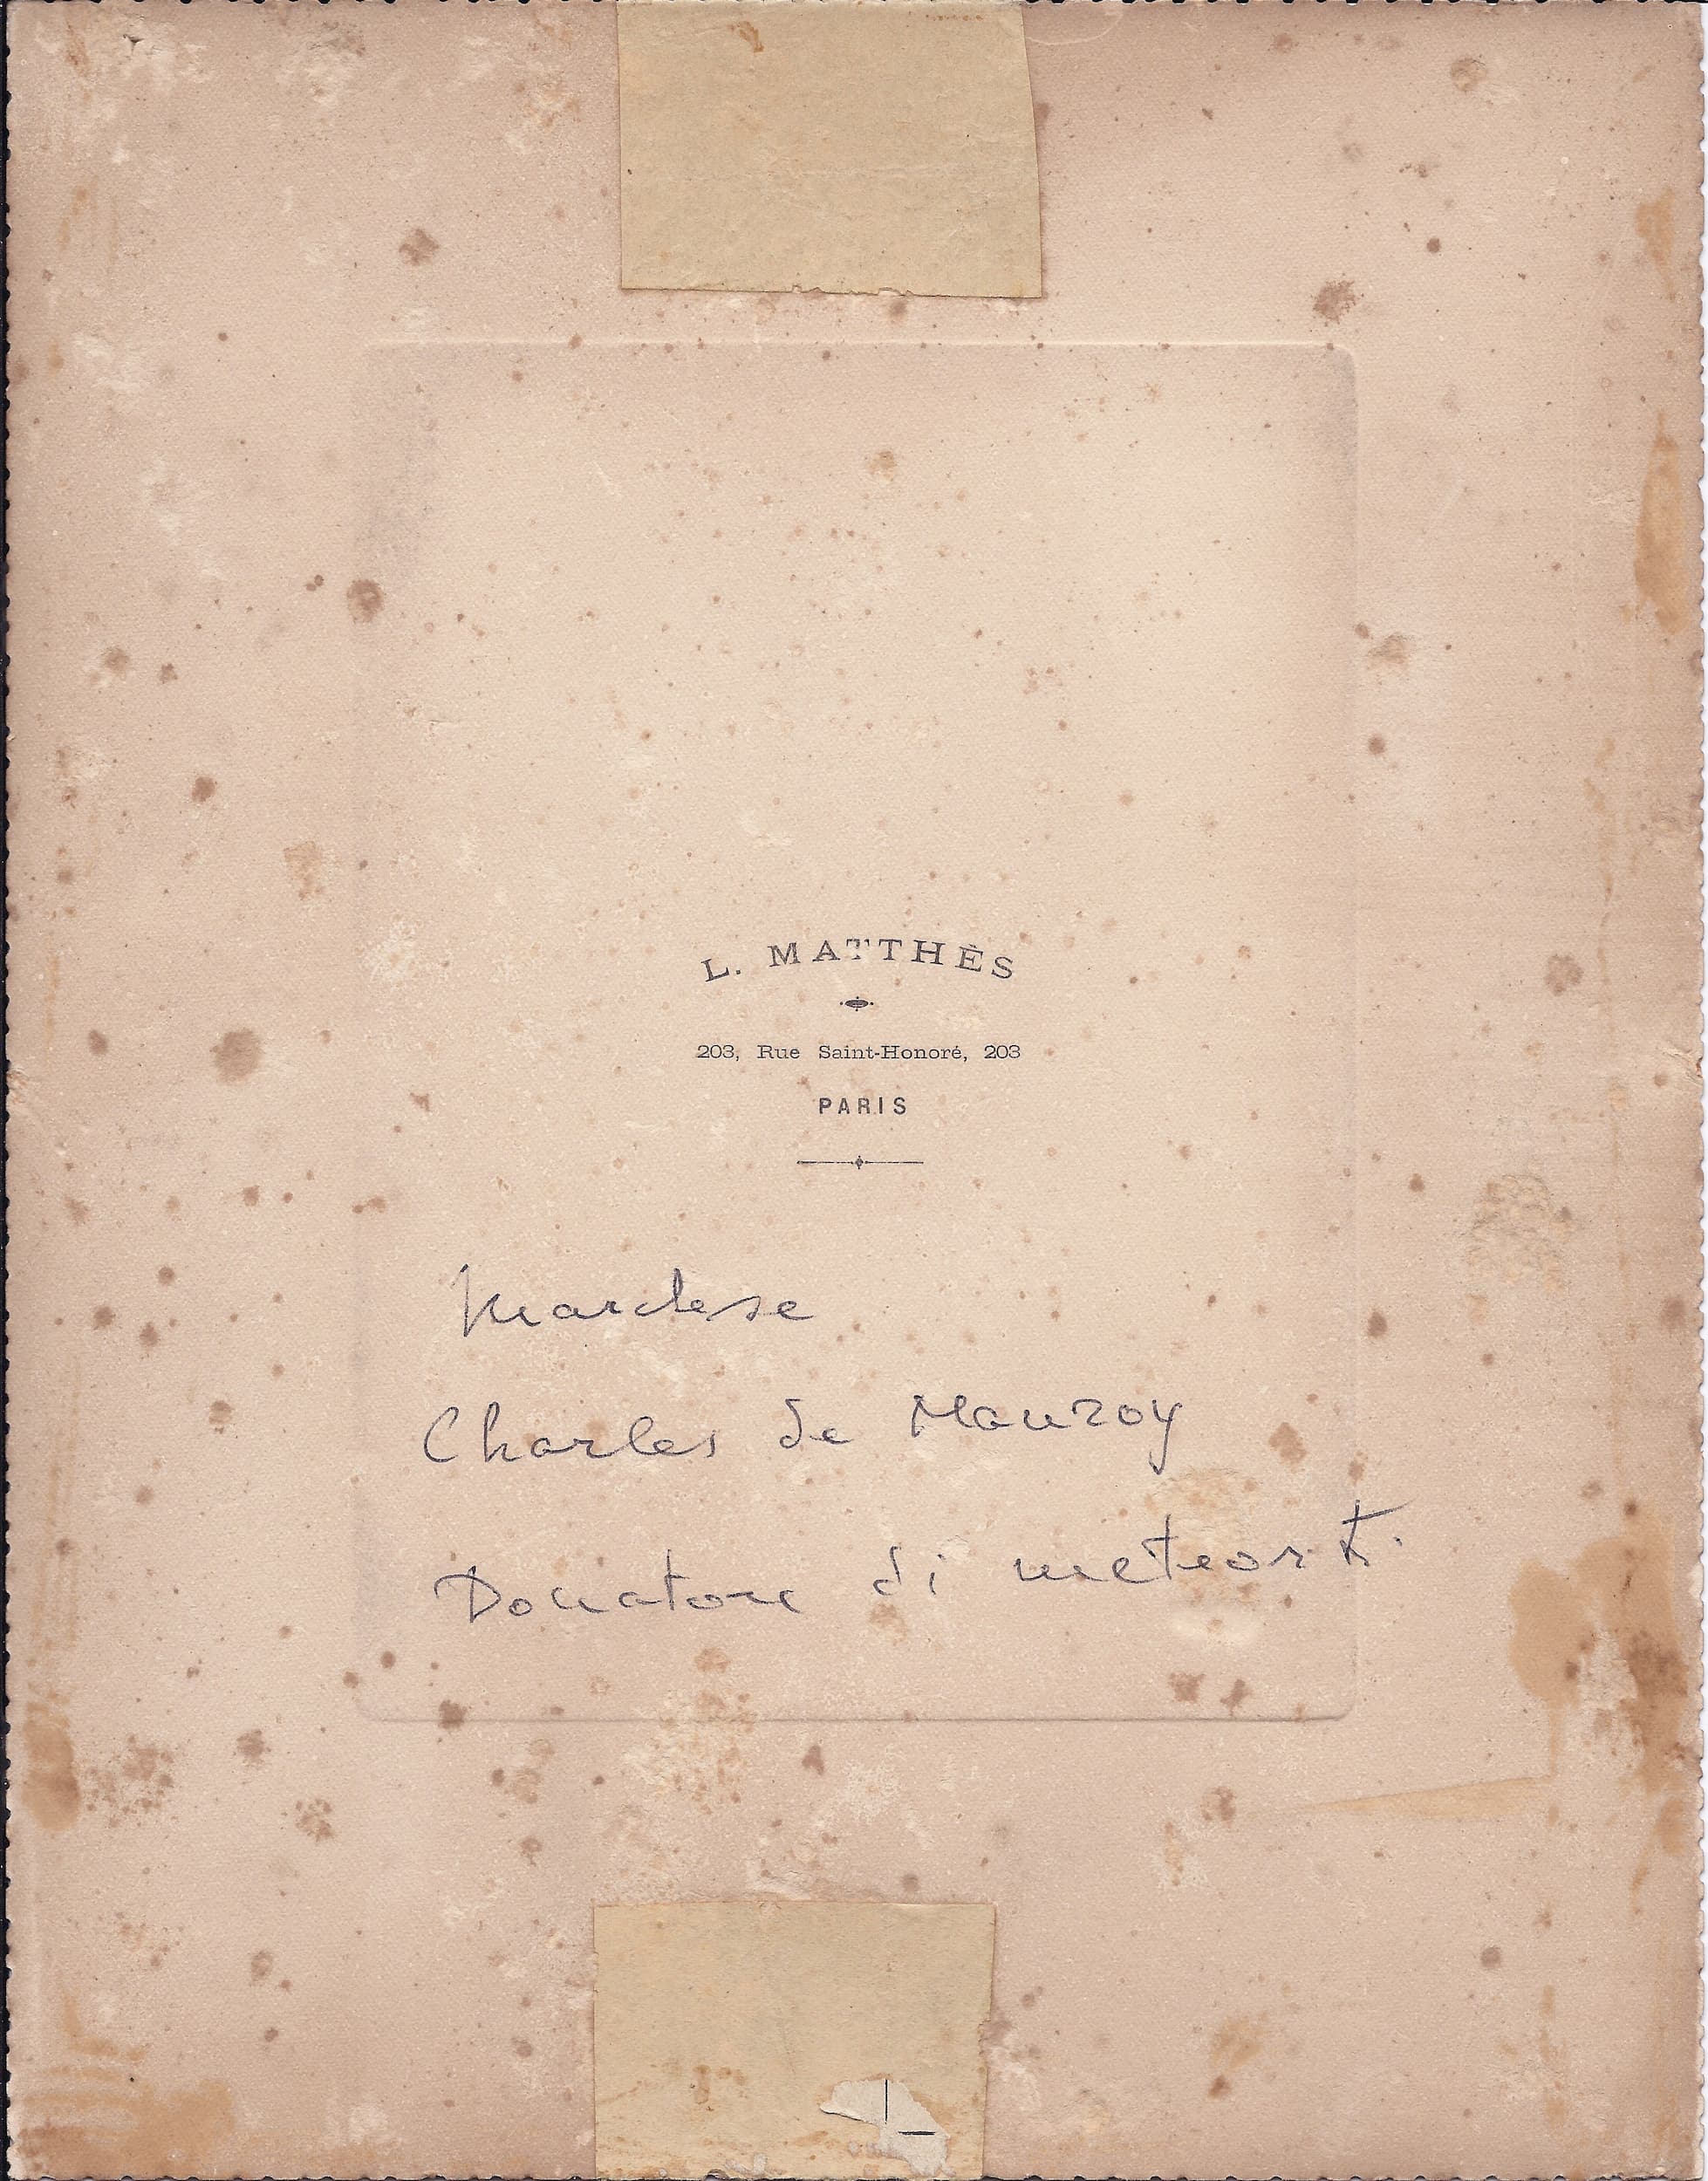 L. MATTHÈS
203, Rue Saint-Honoré, 203
PARIS
Marchese
Charles de Mauroy
Donatore di meteoriti.